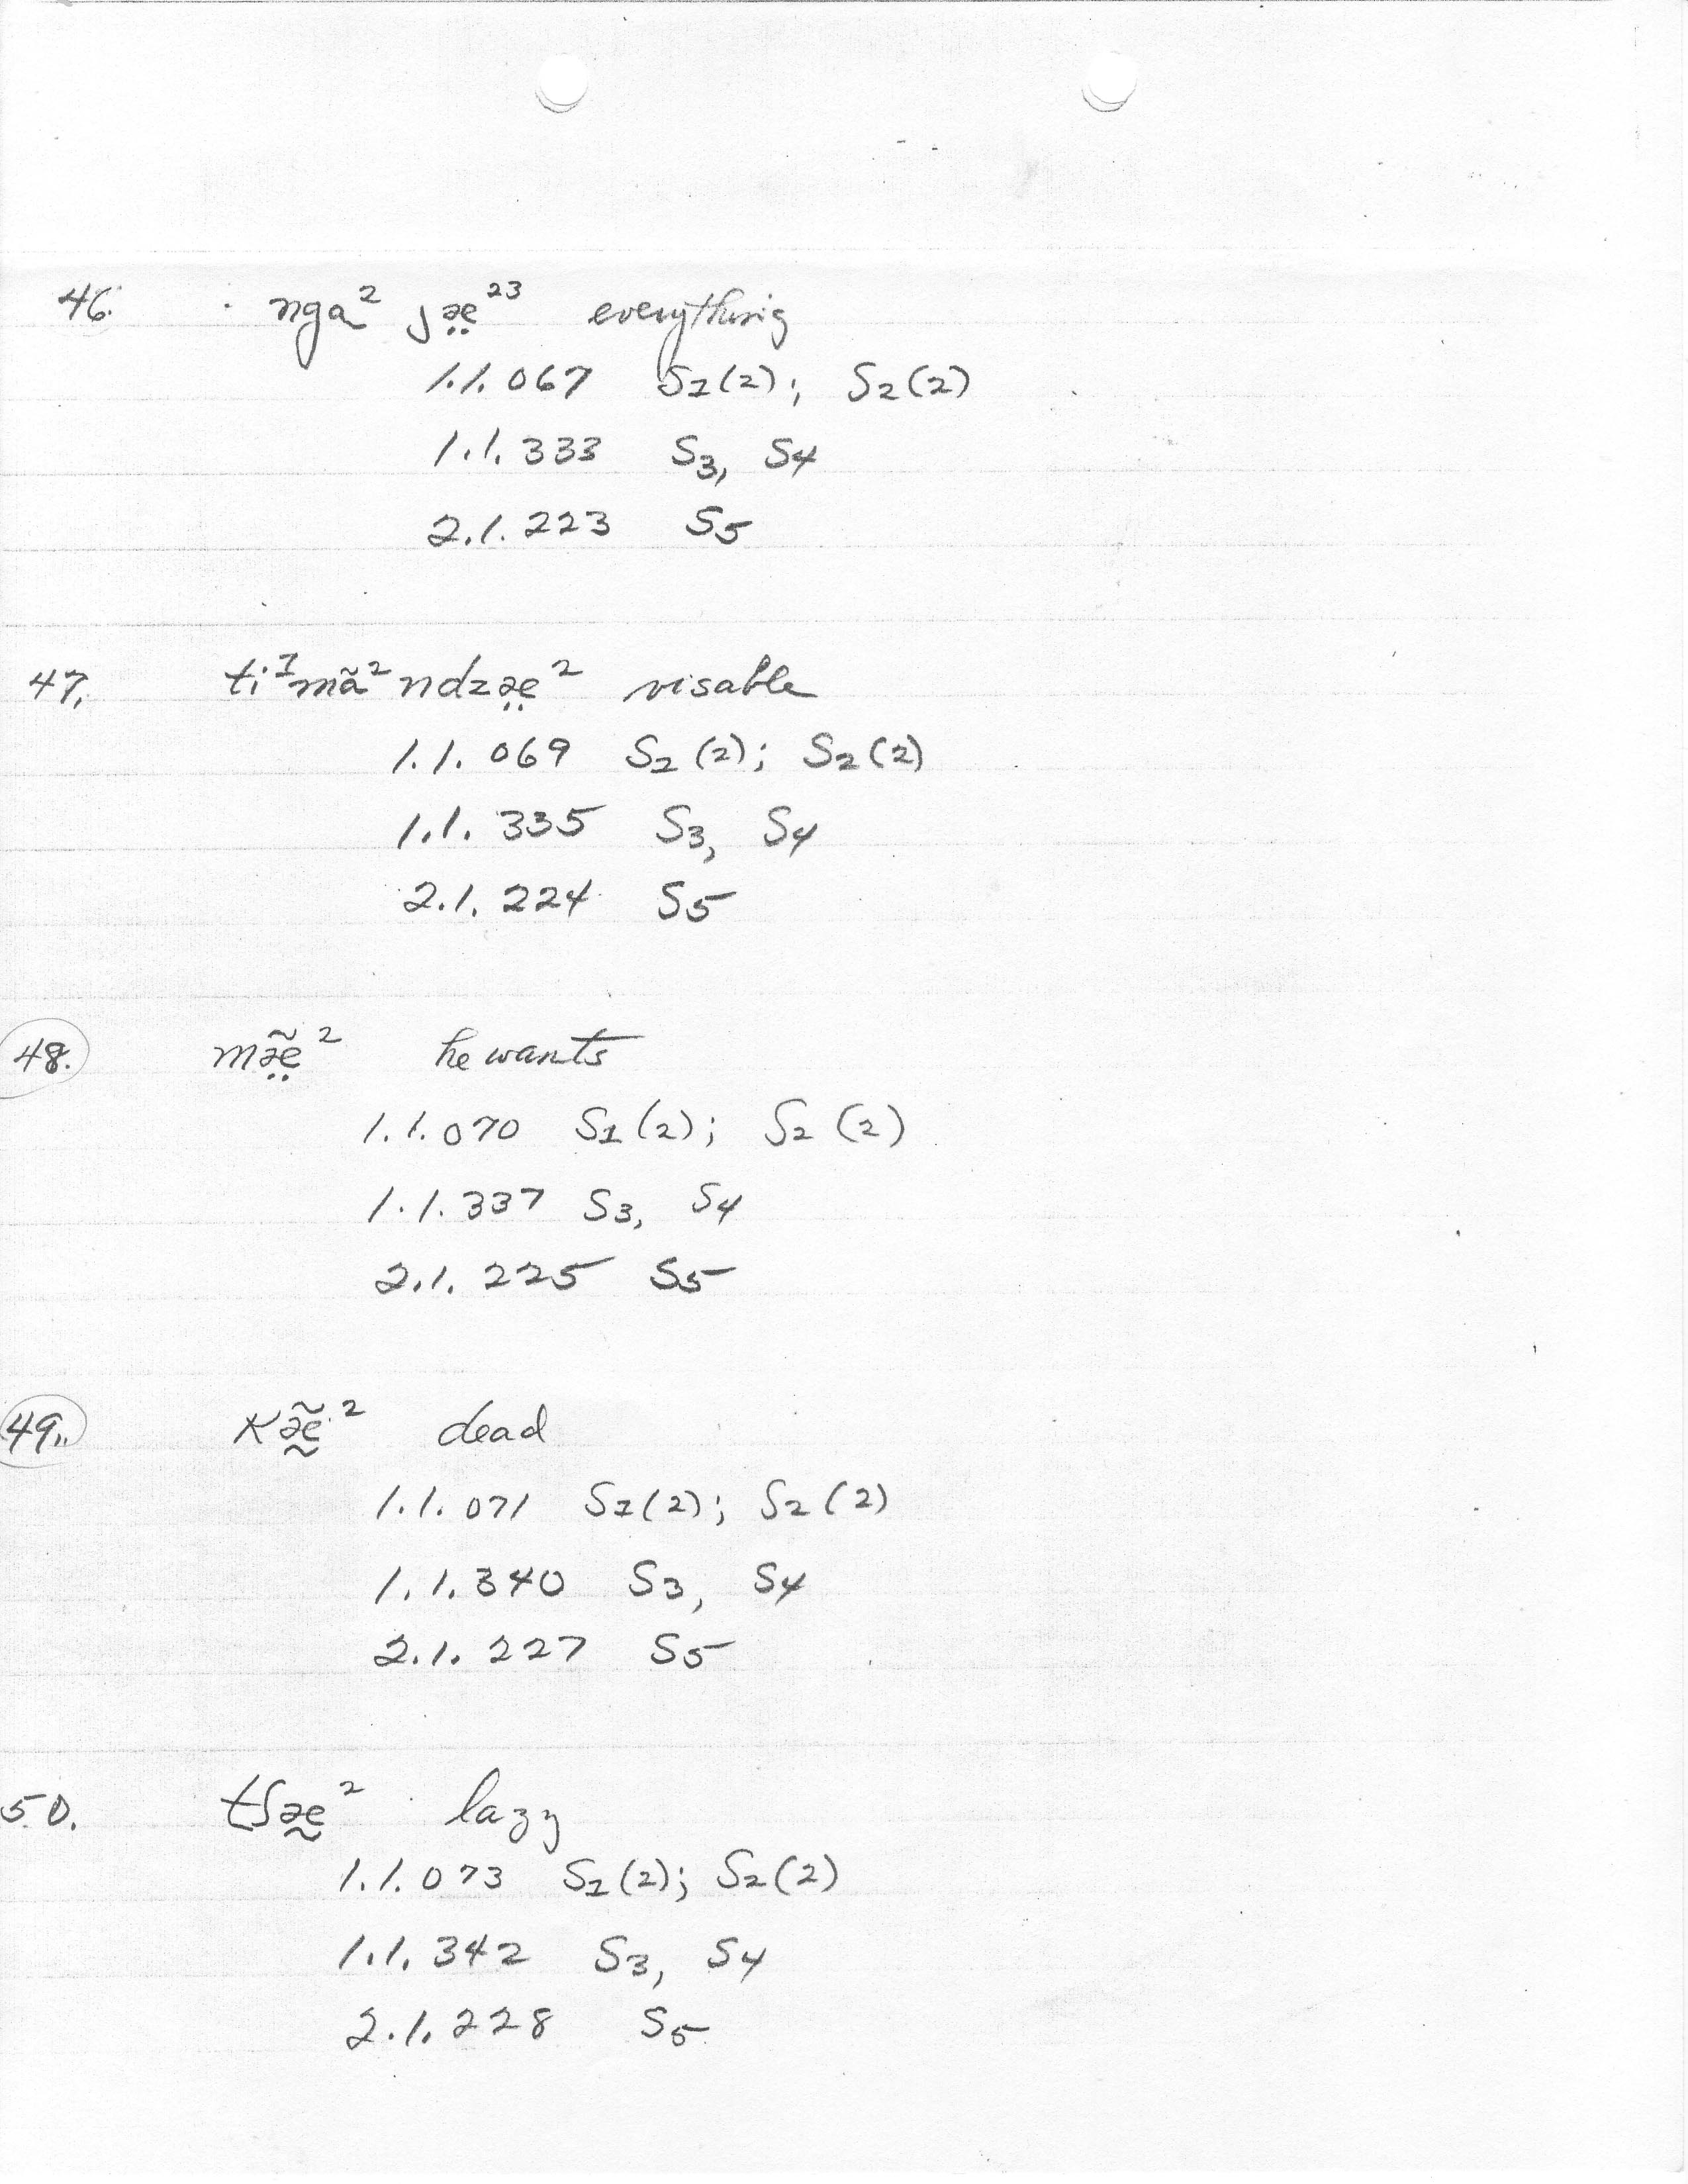 46. nga² jæ̤²³ everything
1.1.067 S1(2); S2(2)
1.1.333 S3, S4
2.1.223 S5
47. ti¹mã²ndzæ̤² visable
1.1.069 S2(2); S2(2)
1.1.335 S3, S4
2.1.224 S5
48. mæ̤̃² he wants
1.1.070 S1(2); S2(2)
1.1.337 S3, S4
2.1.225 S5
49. kæ̰̃² dead
1.1.071 S1(2); S2(2)
1.1.340 S3, S4
2.1.227 S5
50. tʃæ̰² lazy
1.1.073 S1(2); S2(2)
1.1.342 S3, S4
2.1.228 S5